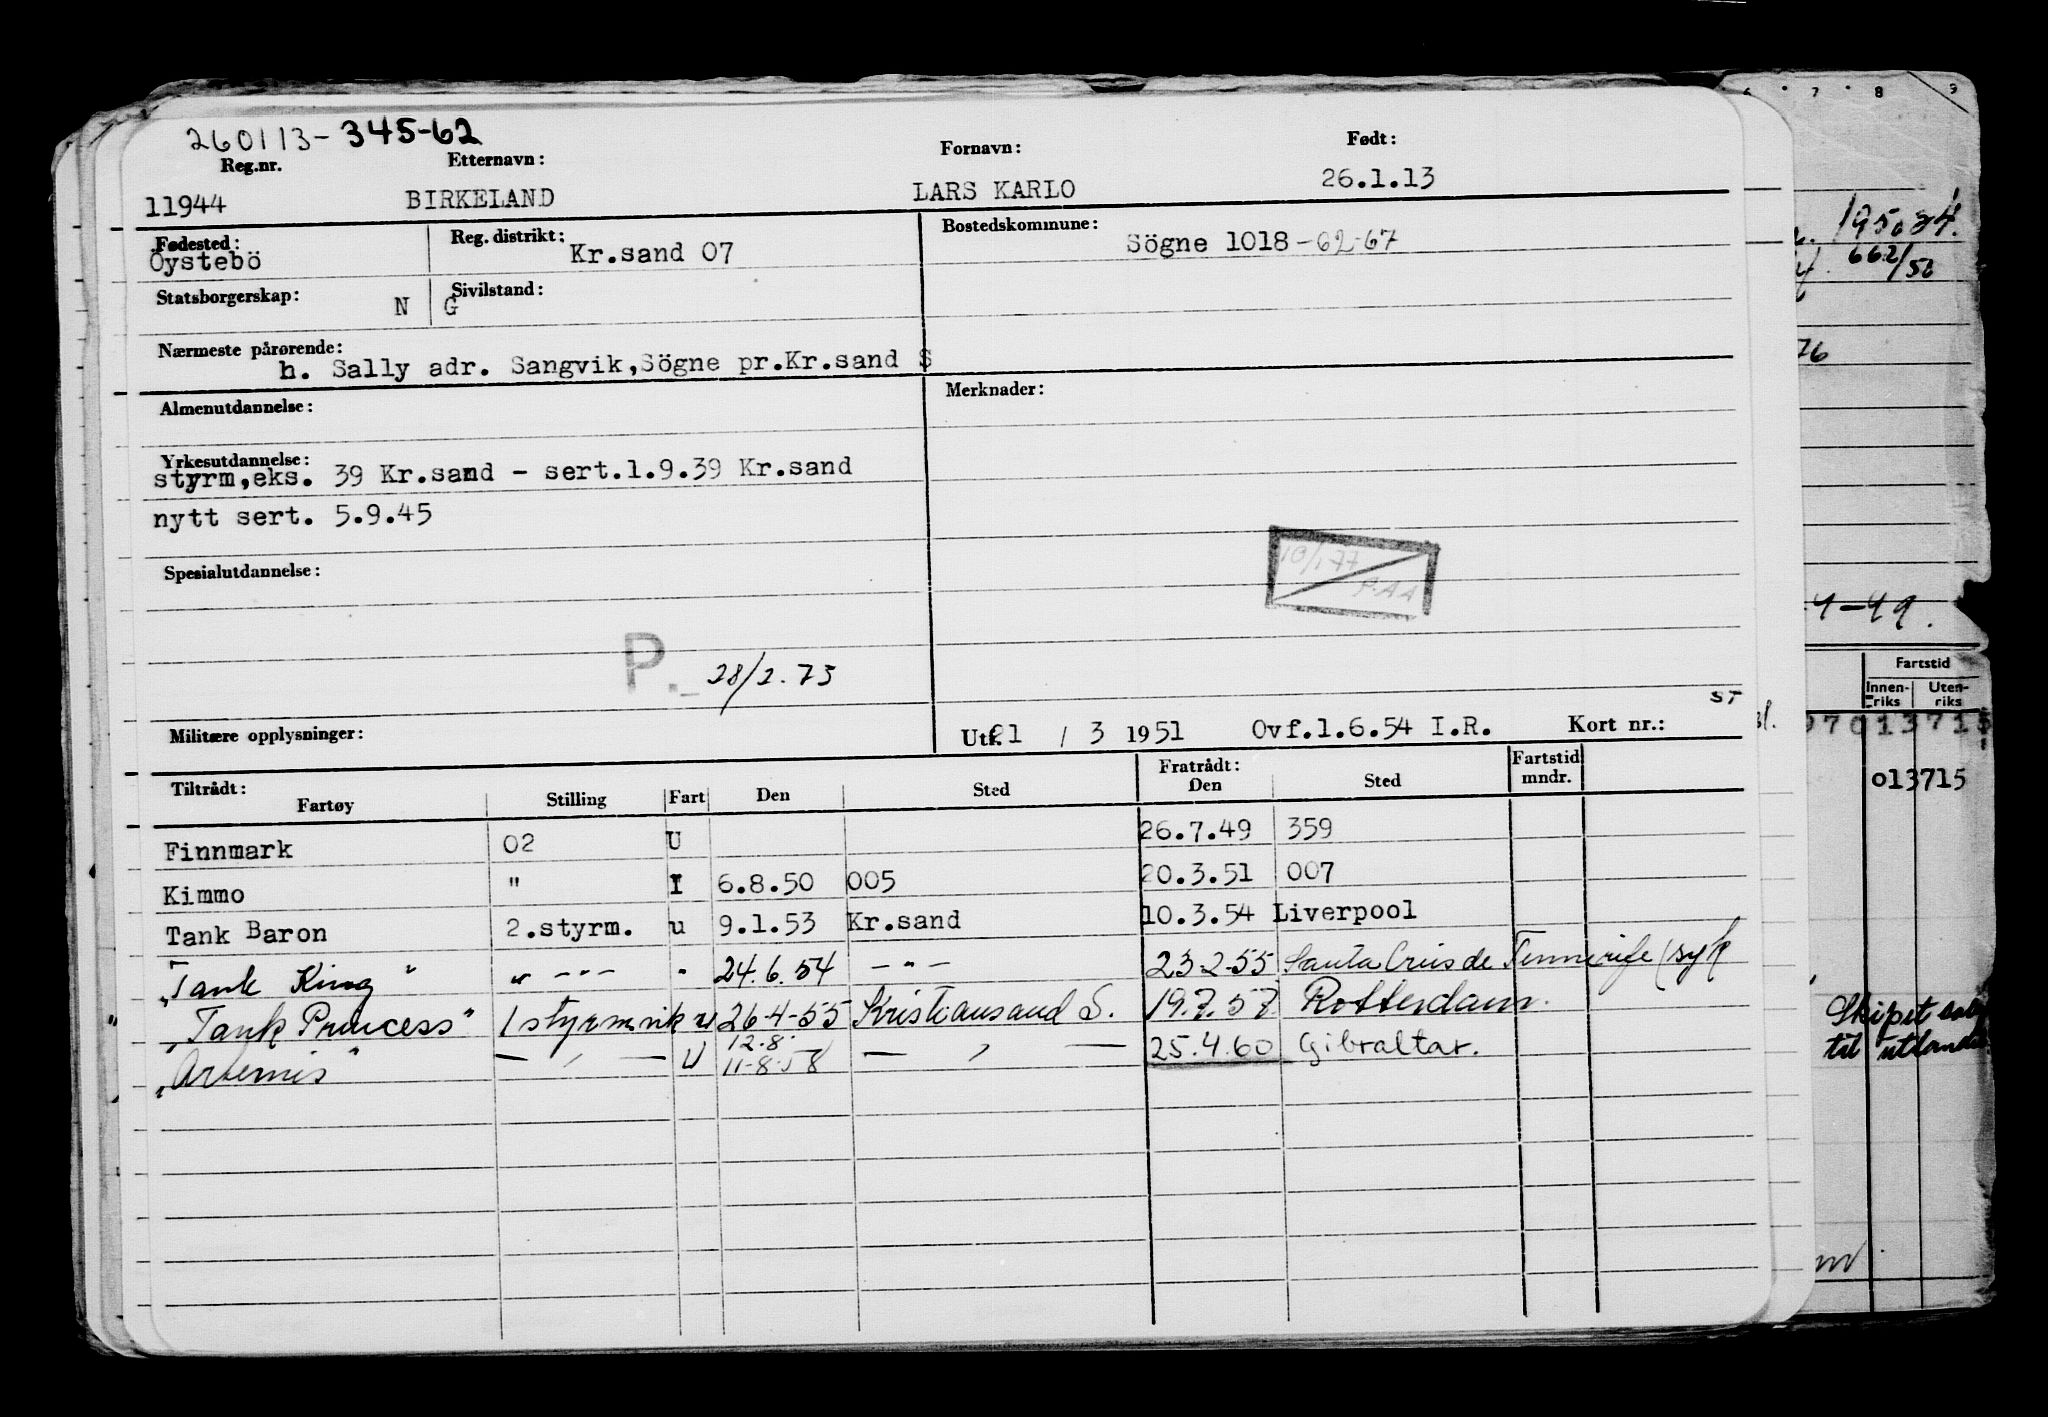 260113-345-62
Reg.nr. Etternavn: Fornavn: Født:
11944 BIRKELAND LARS KARLO 26.1.13
Fødested: Reg. distrikt: Bostedskommune:
Öystebö Kr.sand 07 Sögne 1018-62-67
Statsborgerskap: N Sivilstand: G
Nærmeste pårørende:
h. Sally adr. Sangvik,Sögne pr.Kr.sand S
Almenutdannelse: Merknader:
Yrkesutdannelse:
styrm,eks. 39 Kr.sand - sert.1.9.39 Kr.sand
nytt sert. 5.9.45
10/1 77
P.AA
Spesialutdannelse:
P. 28/2.73
ST
Militære opplysninger: Utf. 21 / 3 1951 Ovf.1.6.54 I.R. Kort nr.:
Tiltrådt: Fratrådt: Fartstid
Fartøy Stilling Fart Den Sted Den Sted mndr.
Finnmark 02 U 26.7.49 359
Kimmo " I 6.8.50 005 20.3.51 007
Tank Baron 2.styrm. u 9.1.53 Kr.sand 10.3.54 Liverpool
"Tank King" " --- " 24.6.54 -"- 23-2-55 Santa Cruis de Tennerife (syk
"Tank Princess" 1 styrmsvik u 26-4-55 Kristiansand S. 19.7.57 Rotterdam.
12.8.
"Artemis" — " — U 11-8-58 — " — 25.4.60 Gibraltar.
6 7 8 9
195034.
662/50
76
4-49.
Fartstid
Innen-riks Uten-riks
013715
013715
Skipet
til